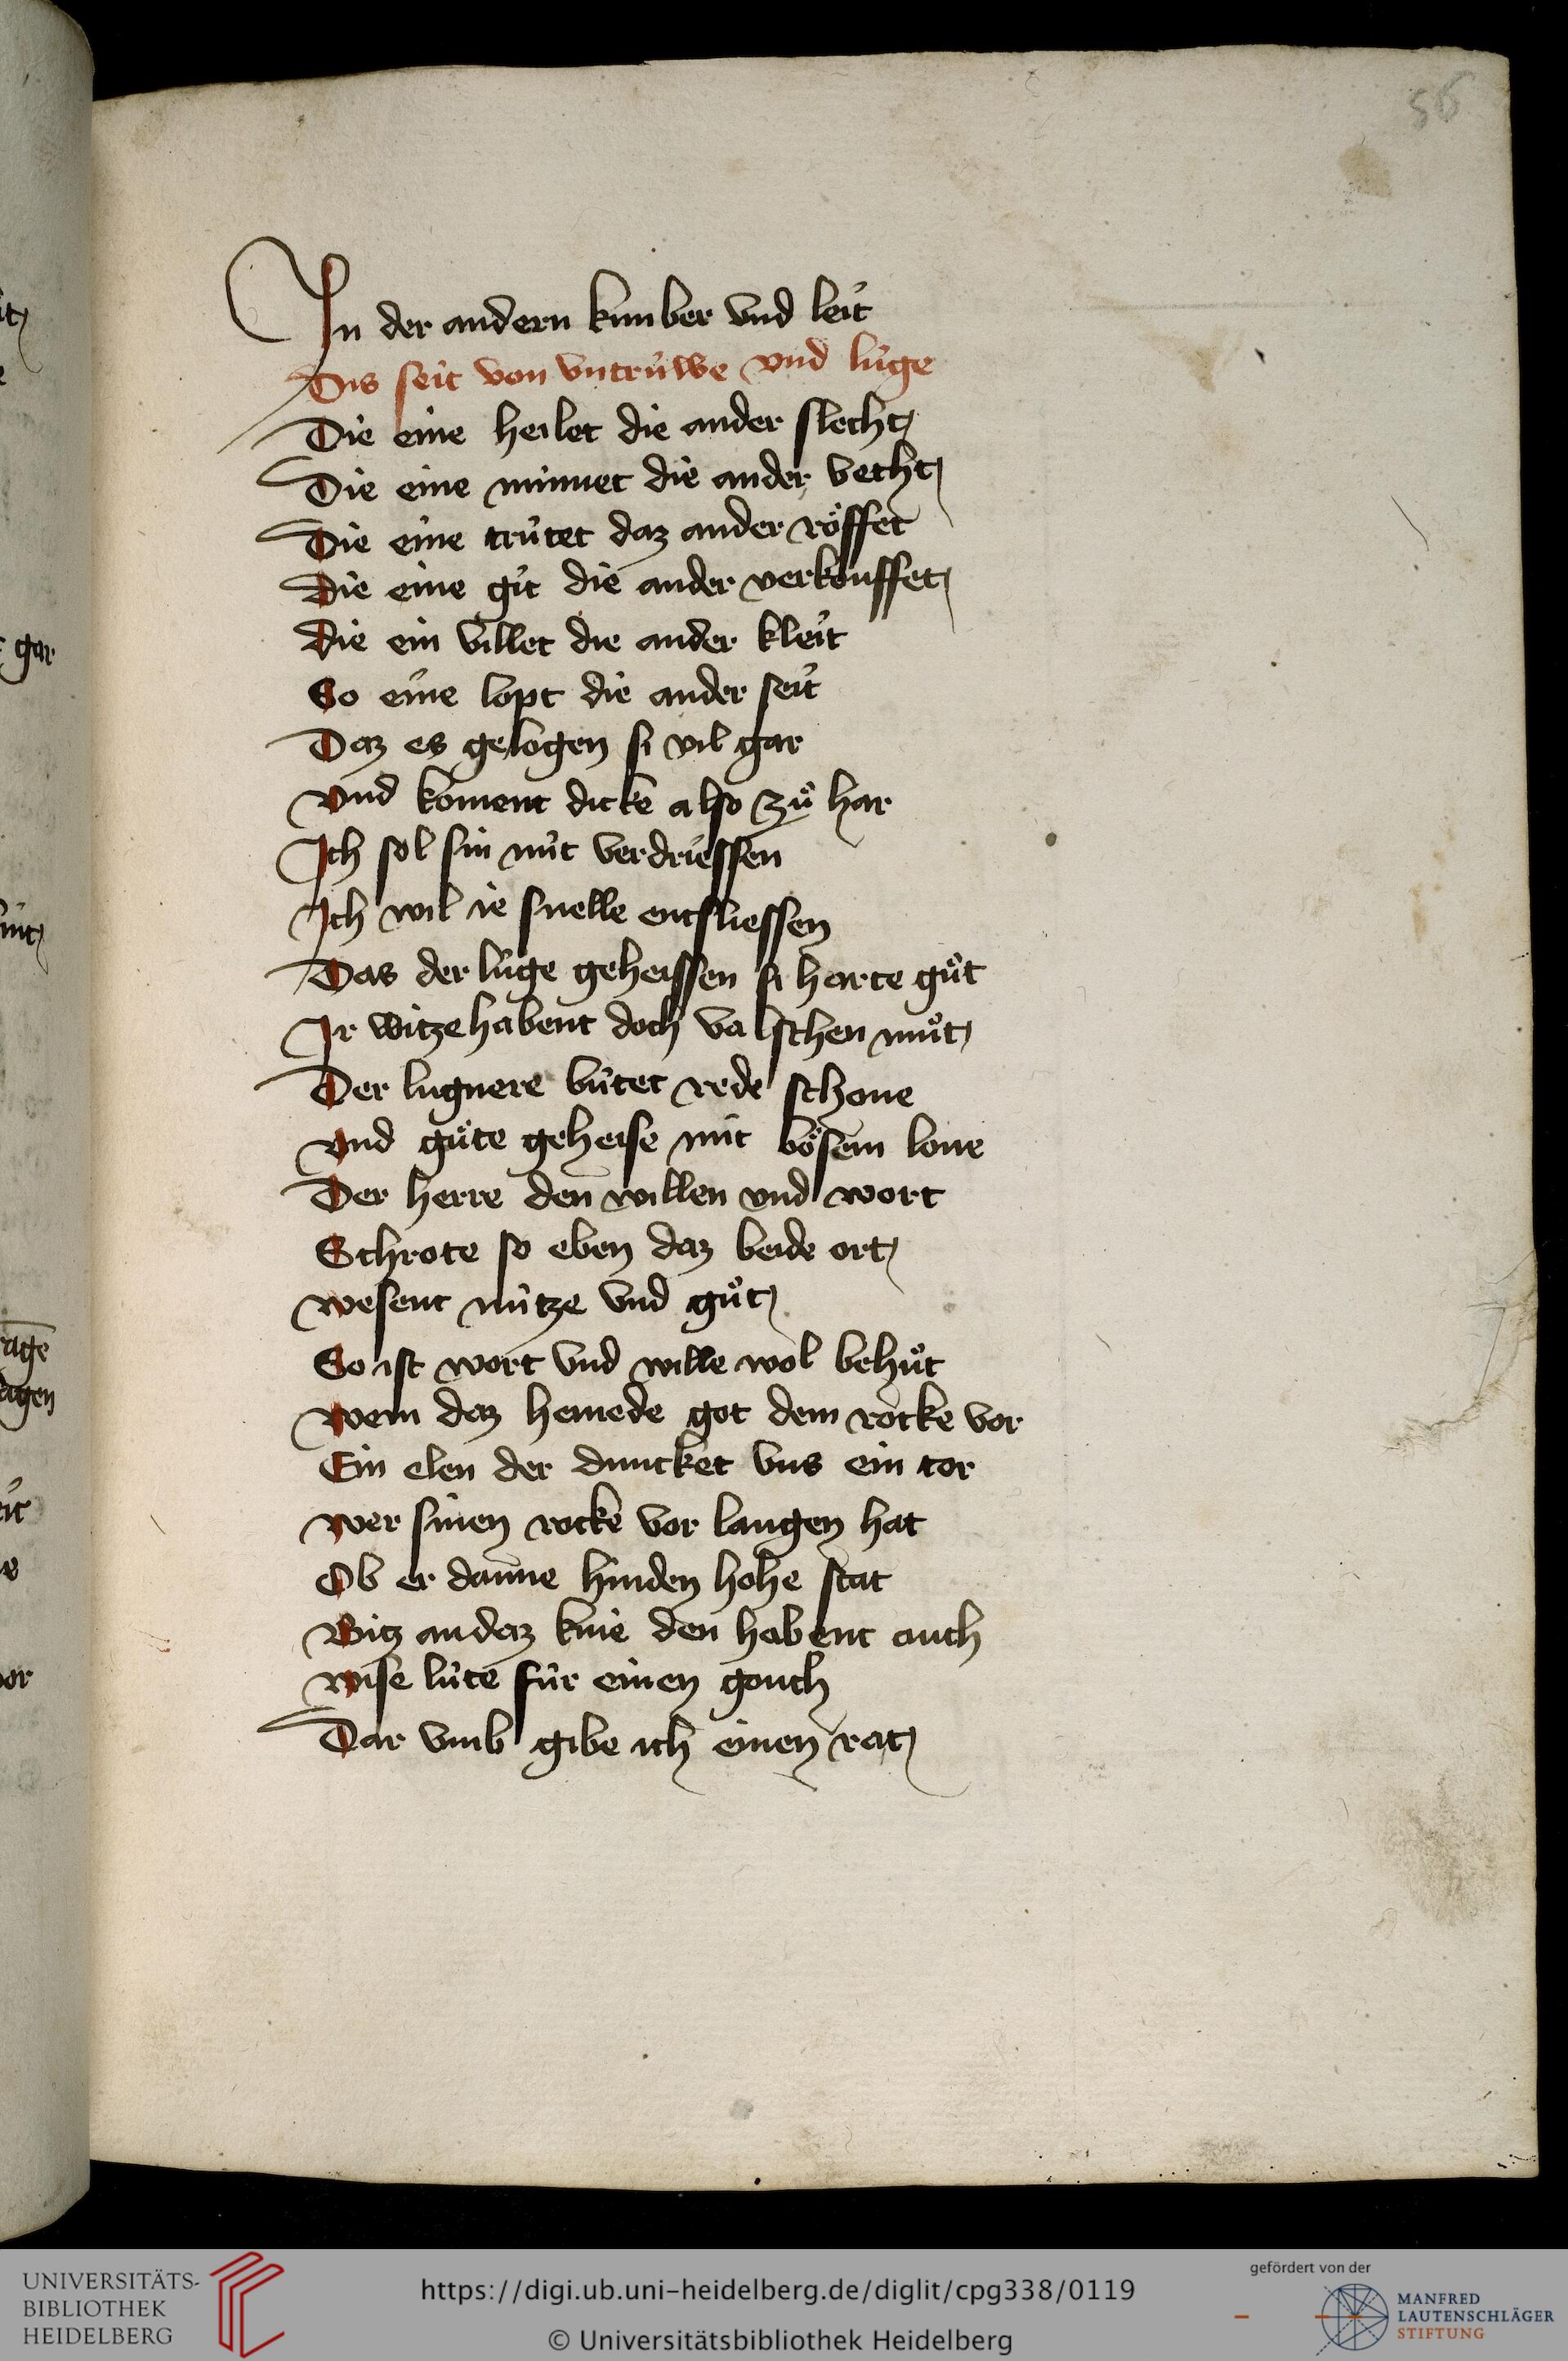 56
In der andern kunber vnd leit
Dis seit von vntrúwe vnd lúge
Die eine heilet die ander slecht
Die eine minnet die ander vecht
Die eine trútet daz ander röffet
Die eine git die ander verkouffet
Die ein villet die ander kleit
So eine lopt die ander seit
Daz es gelogen si vil gar
vnd koment dicke also zů har
Ich sol sin nút verdriessen
Ich wil ie snelle entsliessen
Das der lúge geheissen si harte gůt
Ir witze habent doch valschen můt
Der lugnere bútet rede schone
vnd gůte geheise mit bösem lone
Der herre den willen vnd wort
Schrote so eben daz beide ort
wesent nútze vnd gůt
So ist wort vnd wille wol behůt
wem daz hemede got dem rocke vor
Ein elen der duncket vns ein tor
wer sinen rocke vor langen hat
Ob er danne hinden hohe stat
Bitz an daz knie den habent ouch
wise lúte fúr einen gouch
Dar vmb gibe ich einen rat
gar
age
agen
UNIVERSITÄTS-
BIBLIOTHEK
HEIDELBERG
https://digi.ub.uni-heidelberg.de/diglit/cpg338/0119
© Universitätsbibliothek Heidelberg
gefördert von der
MANFRED
LAUTENSCHLÄGER
STIFTUNG